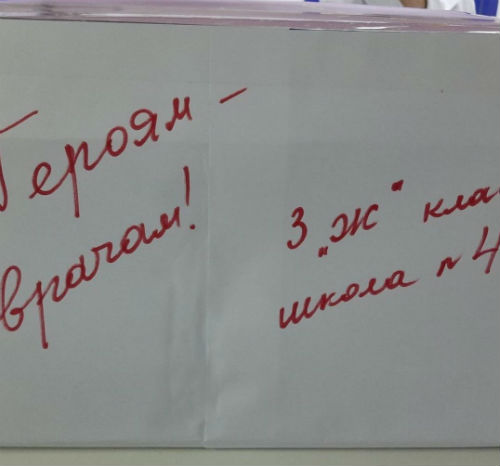 Героям -
врачам!
3 „Ж“ кла
школа № 4